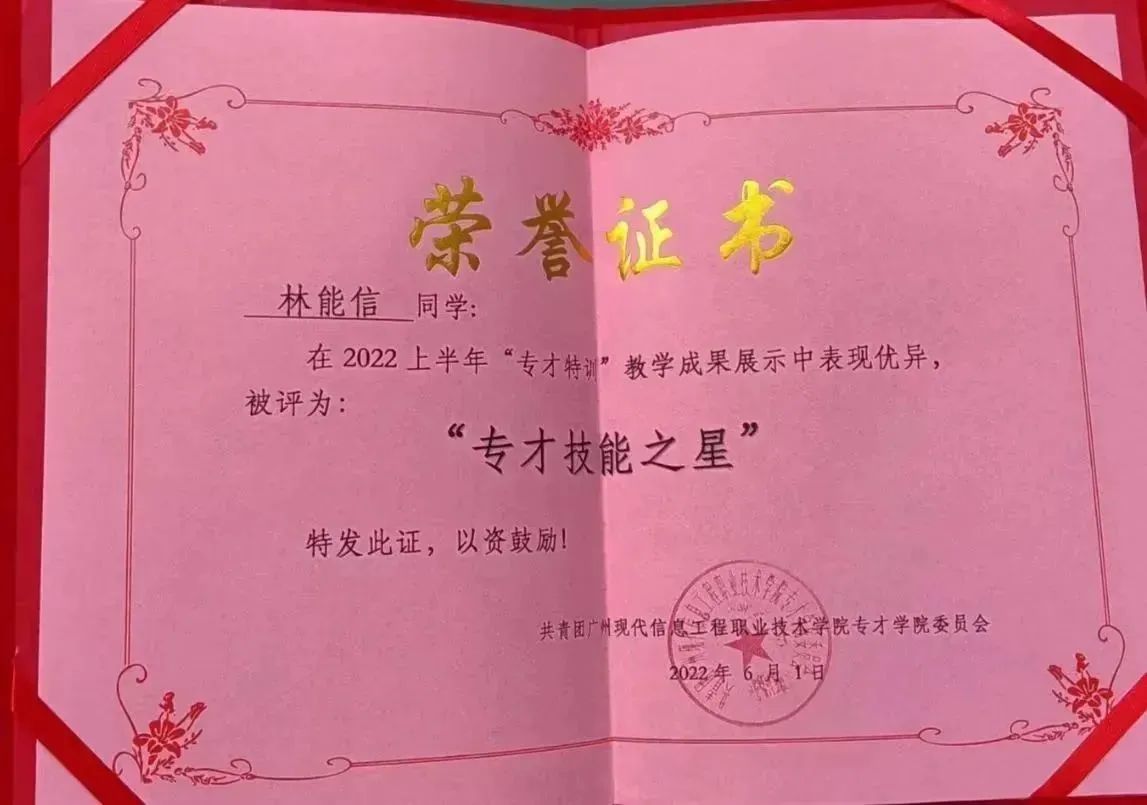 荣誉证书
林能信 同学:
在 2022 上半年“专才特训”教学成果展示中表现优异,
被评为:
“专才技能之星”
特发此证, 以资鼓励!
共青团广州现代信息工程职业技术学院专才学院委员会
2022 年 6 月 1 日